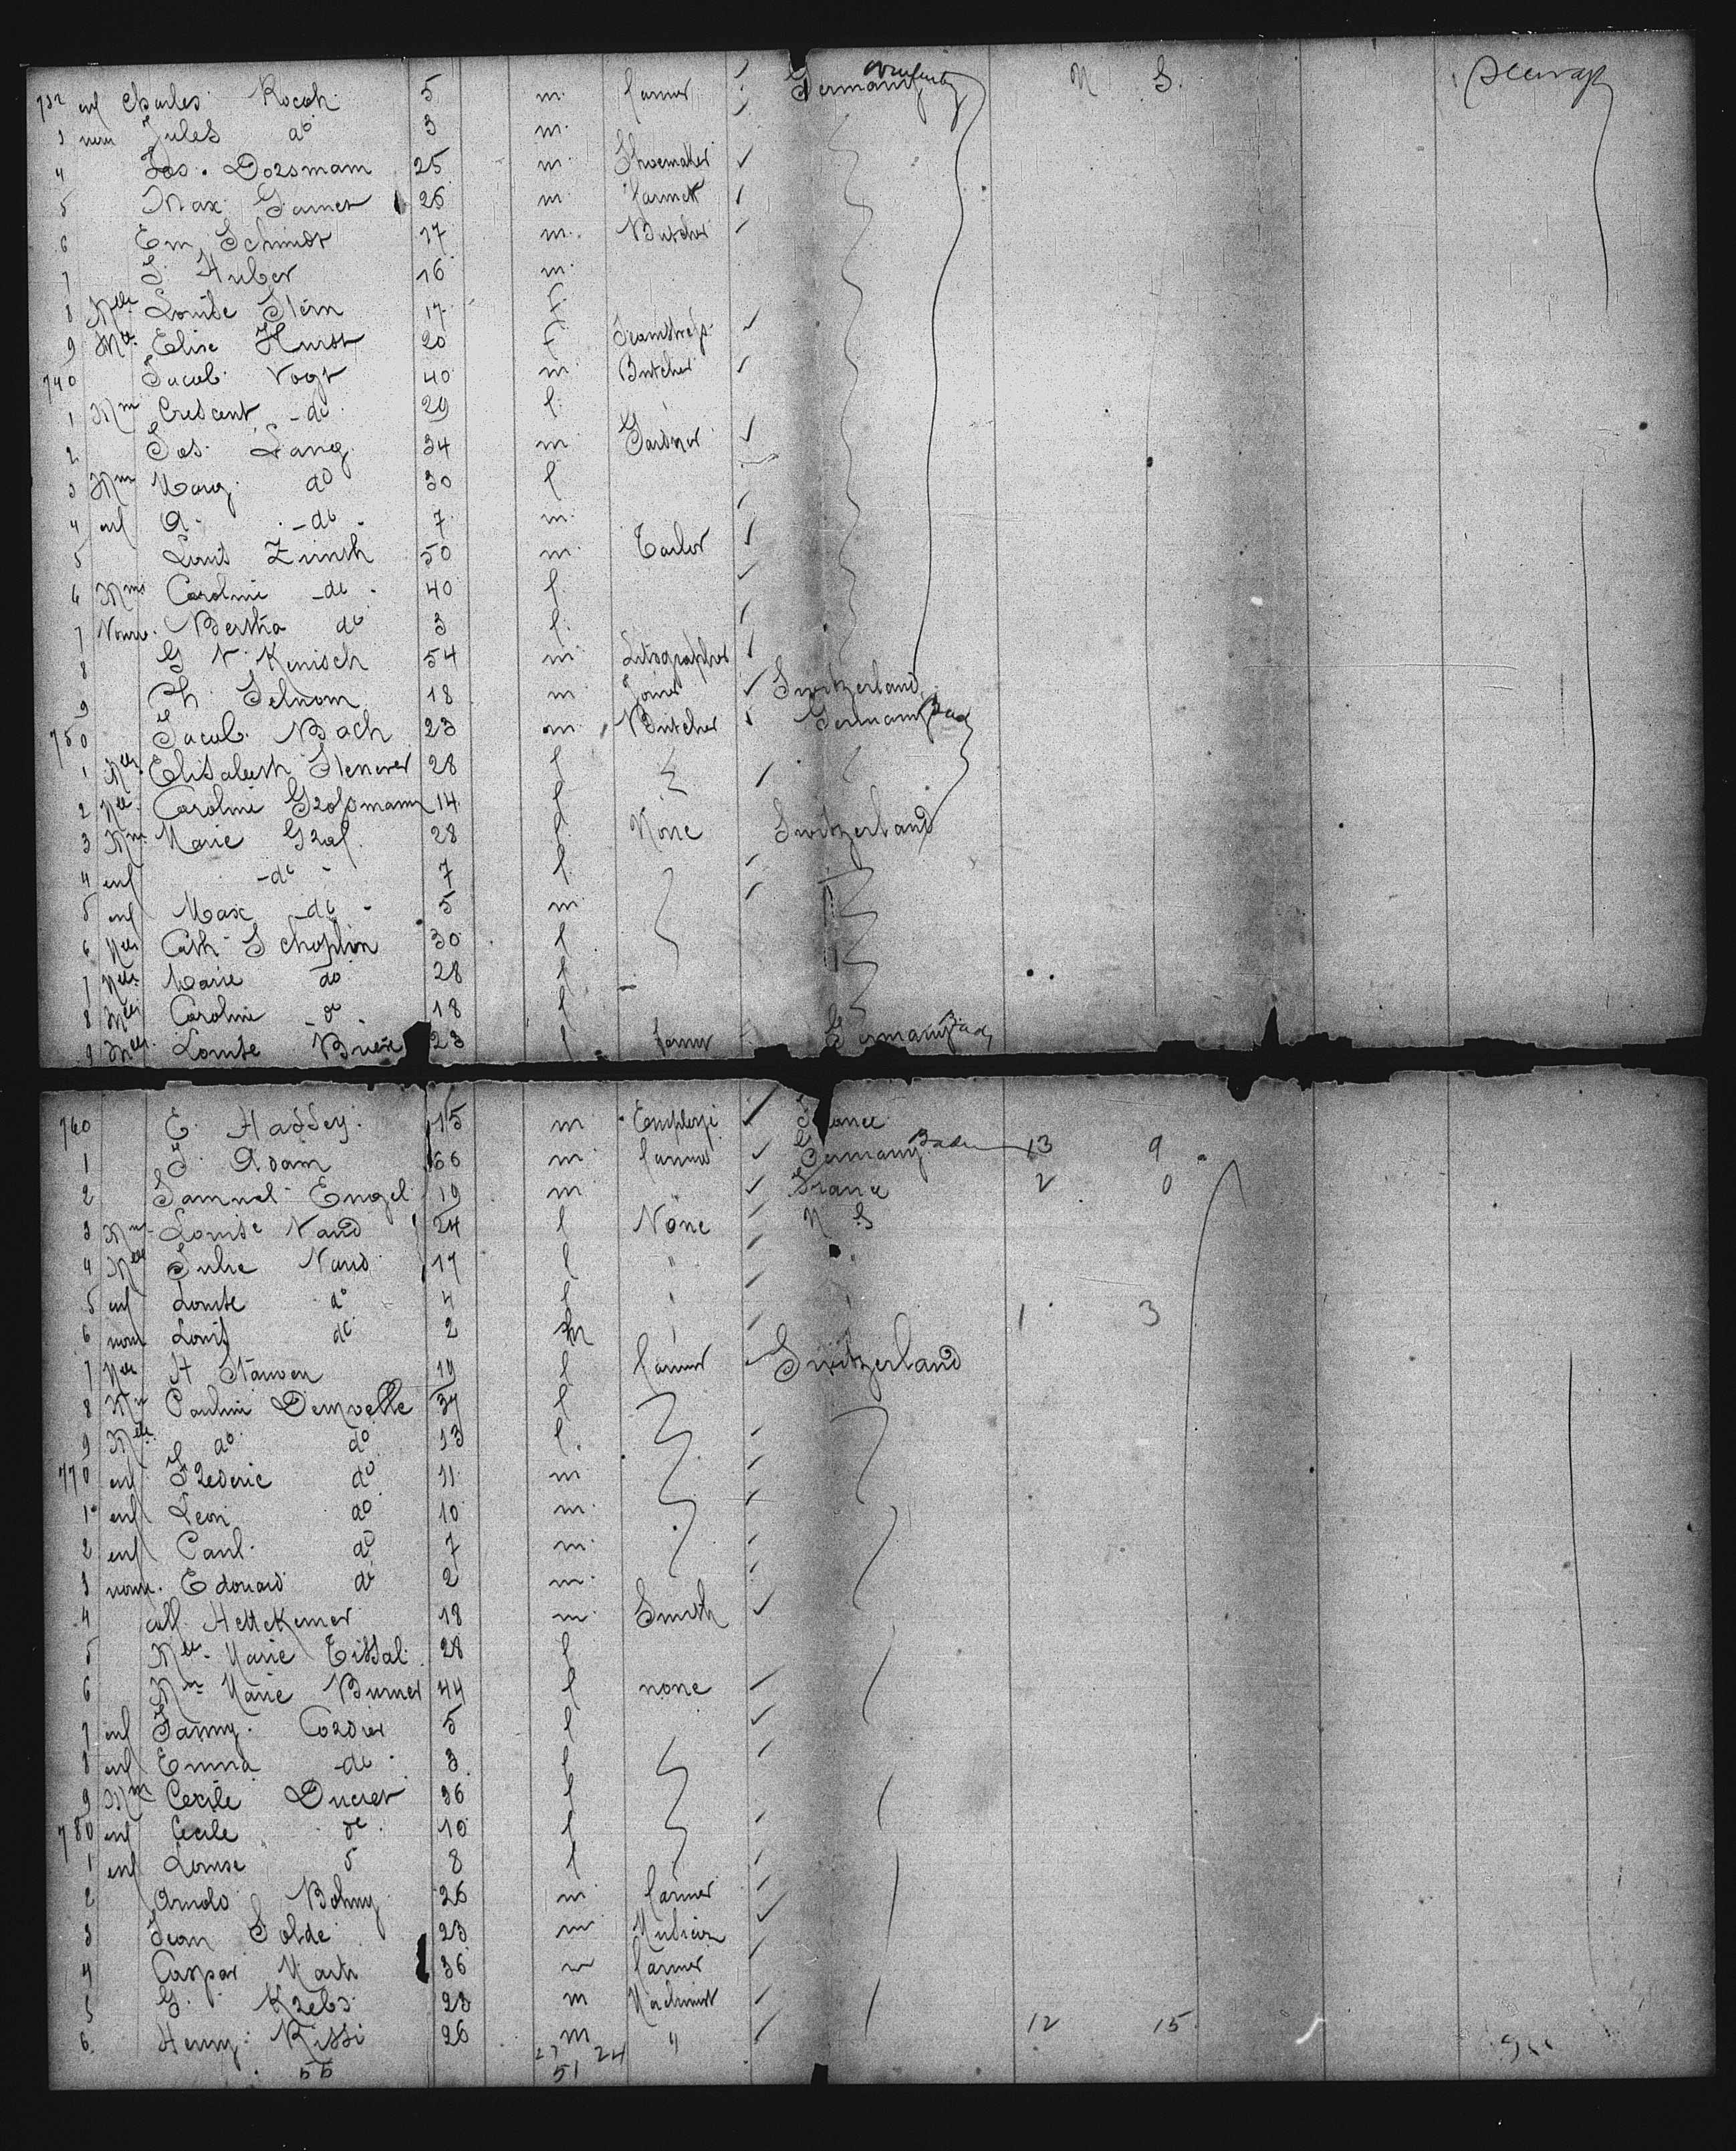 732 enf Charles Rocoh 5 m. farmer Germany N S. Steerage
3 nou Jules do 3 m.
4 Jos. Dorsmam 25 m. Shoemaker
5 Max. Garner 26 m farmer
6 Em. Schmidt 17 m. Butcher
7 J. Huber 16 m.
8 Melle Louise Stern 17. f.
9 Melle Elise Hurst 20 f. Seamstress
740 Jacob Vogt 40 m. Butcher
1 Mme Crescent do. 29 f.
2 Jos. Lang. 34 m. Gardner
3 Mme Marg. do 30 f
4 enf A. do. 7. m.
5 Louis Zimsh 50 m. Tailor
6 Mme Caroline do. 40 f
7 Nourr. Bertha do 3 f.
8 G V. Kenisch 54 m Litographer
9 Th. Selnom 18 m Joiner Switzerland
750 Jacob. Bach 23 m Butcher Germany Bad
1 Melle Elisabeth 28 f
2 Melle Caroline Grossmann 14. f
3 Mme Marie Graf. 28 f. None Switzerland
4 enf do 7 f.
5 enf Max do 5 m
6 Melle Cath. Schoplin 30 f
7 Melle Marie do 28 f
8 Melle Caroline do 18 f
9 Melle Louise 23 f farmer Germany Bad
760 E. Haddey. 15 m Employe France
1 J. Adam 66 m. farmer Germany Baden 13 9
2 Samuel Engel 19 m France 2 0
3 Mme Louise Nand 24 f None N S
4 Melle Julie Nand 17 f "
5 enf Louise do 4 f " 1 3
6 nour Louis do 2 m "
7 Melle H Stauven 19 f farmer Switzerland
8 Mme Pauline Demvelle 37 f
9 Melle do. do 13 f.
770 enf Frederic do 11. m
1 enf Leon do 10 m.
2 enf Paul. do 7 m.
3 nour. Edouard do 2 m.
4 Hettekemer 18 m. Smith
5 Melle Marie Tissal. 28 f
6 Mme Marie Burner 44 f none
7 enf Fanny. Cordier 5 f
8 enf Emma do. 3. f
9 Mme Cecile Ducret 36 f
780 enf Cecile do. 10 f
1 enf Louise do 8 f
2 Arnold Bohny 26 m farmer
3 Jean Solde 23 m Musician
4 Caspar Marti 36 m farmer
5 G. Krebs. 28 m Machinist
6. Henry Rissi 26 m " 12 15
55 27 24
51